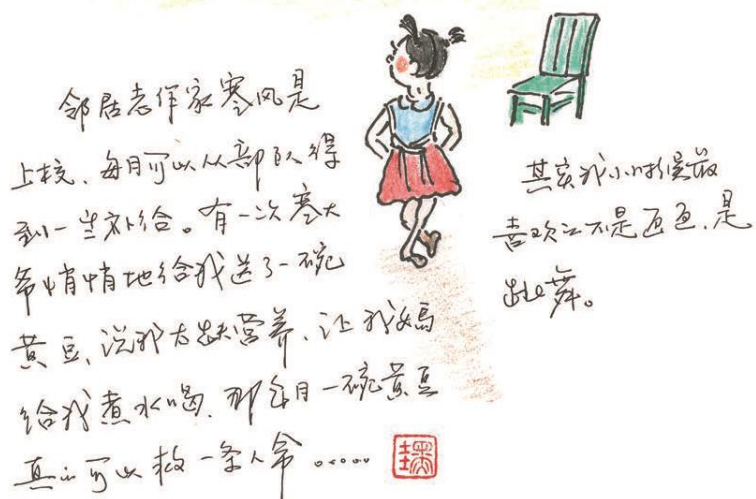 邻居老作家寒风是
上校、每月可以从部队得
到一些补给。有一次寒大
爷悄悄地给我送了一碗
黄豆,说我太缺营养,让我妈
给我煮水喝,那年月一碗黄豆
真的可以救一条人命……
其实我小时候最
喜欢的不是画画,是
跳舞。